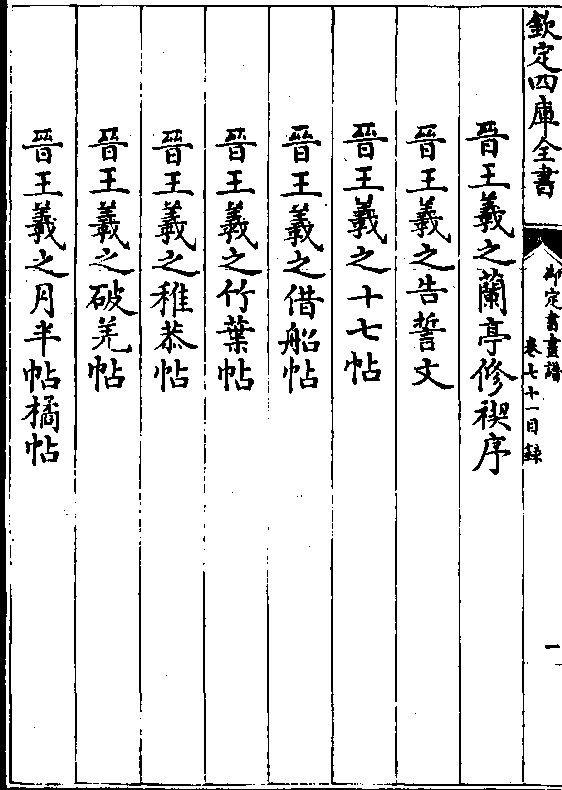 欽定四庫全書
御定書畫譜
卷七十一目録
一
晉王羲之蘭亭修禊序
晉王羲之告誓文
晉王羲之十七帖
晉王羲之借船帖
晉王羲之竹葉帖
晉王羲之稚恭帖
晉王羲之破羌帖
晉王羲之月半帖橘帖